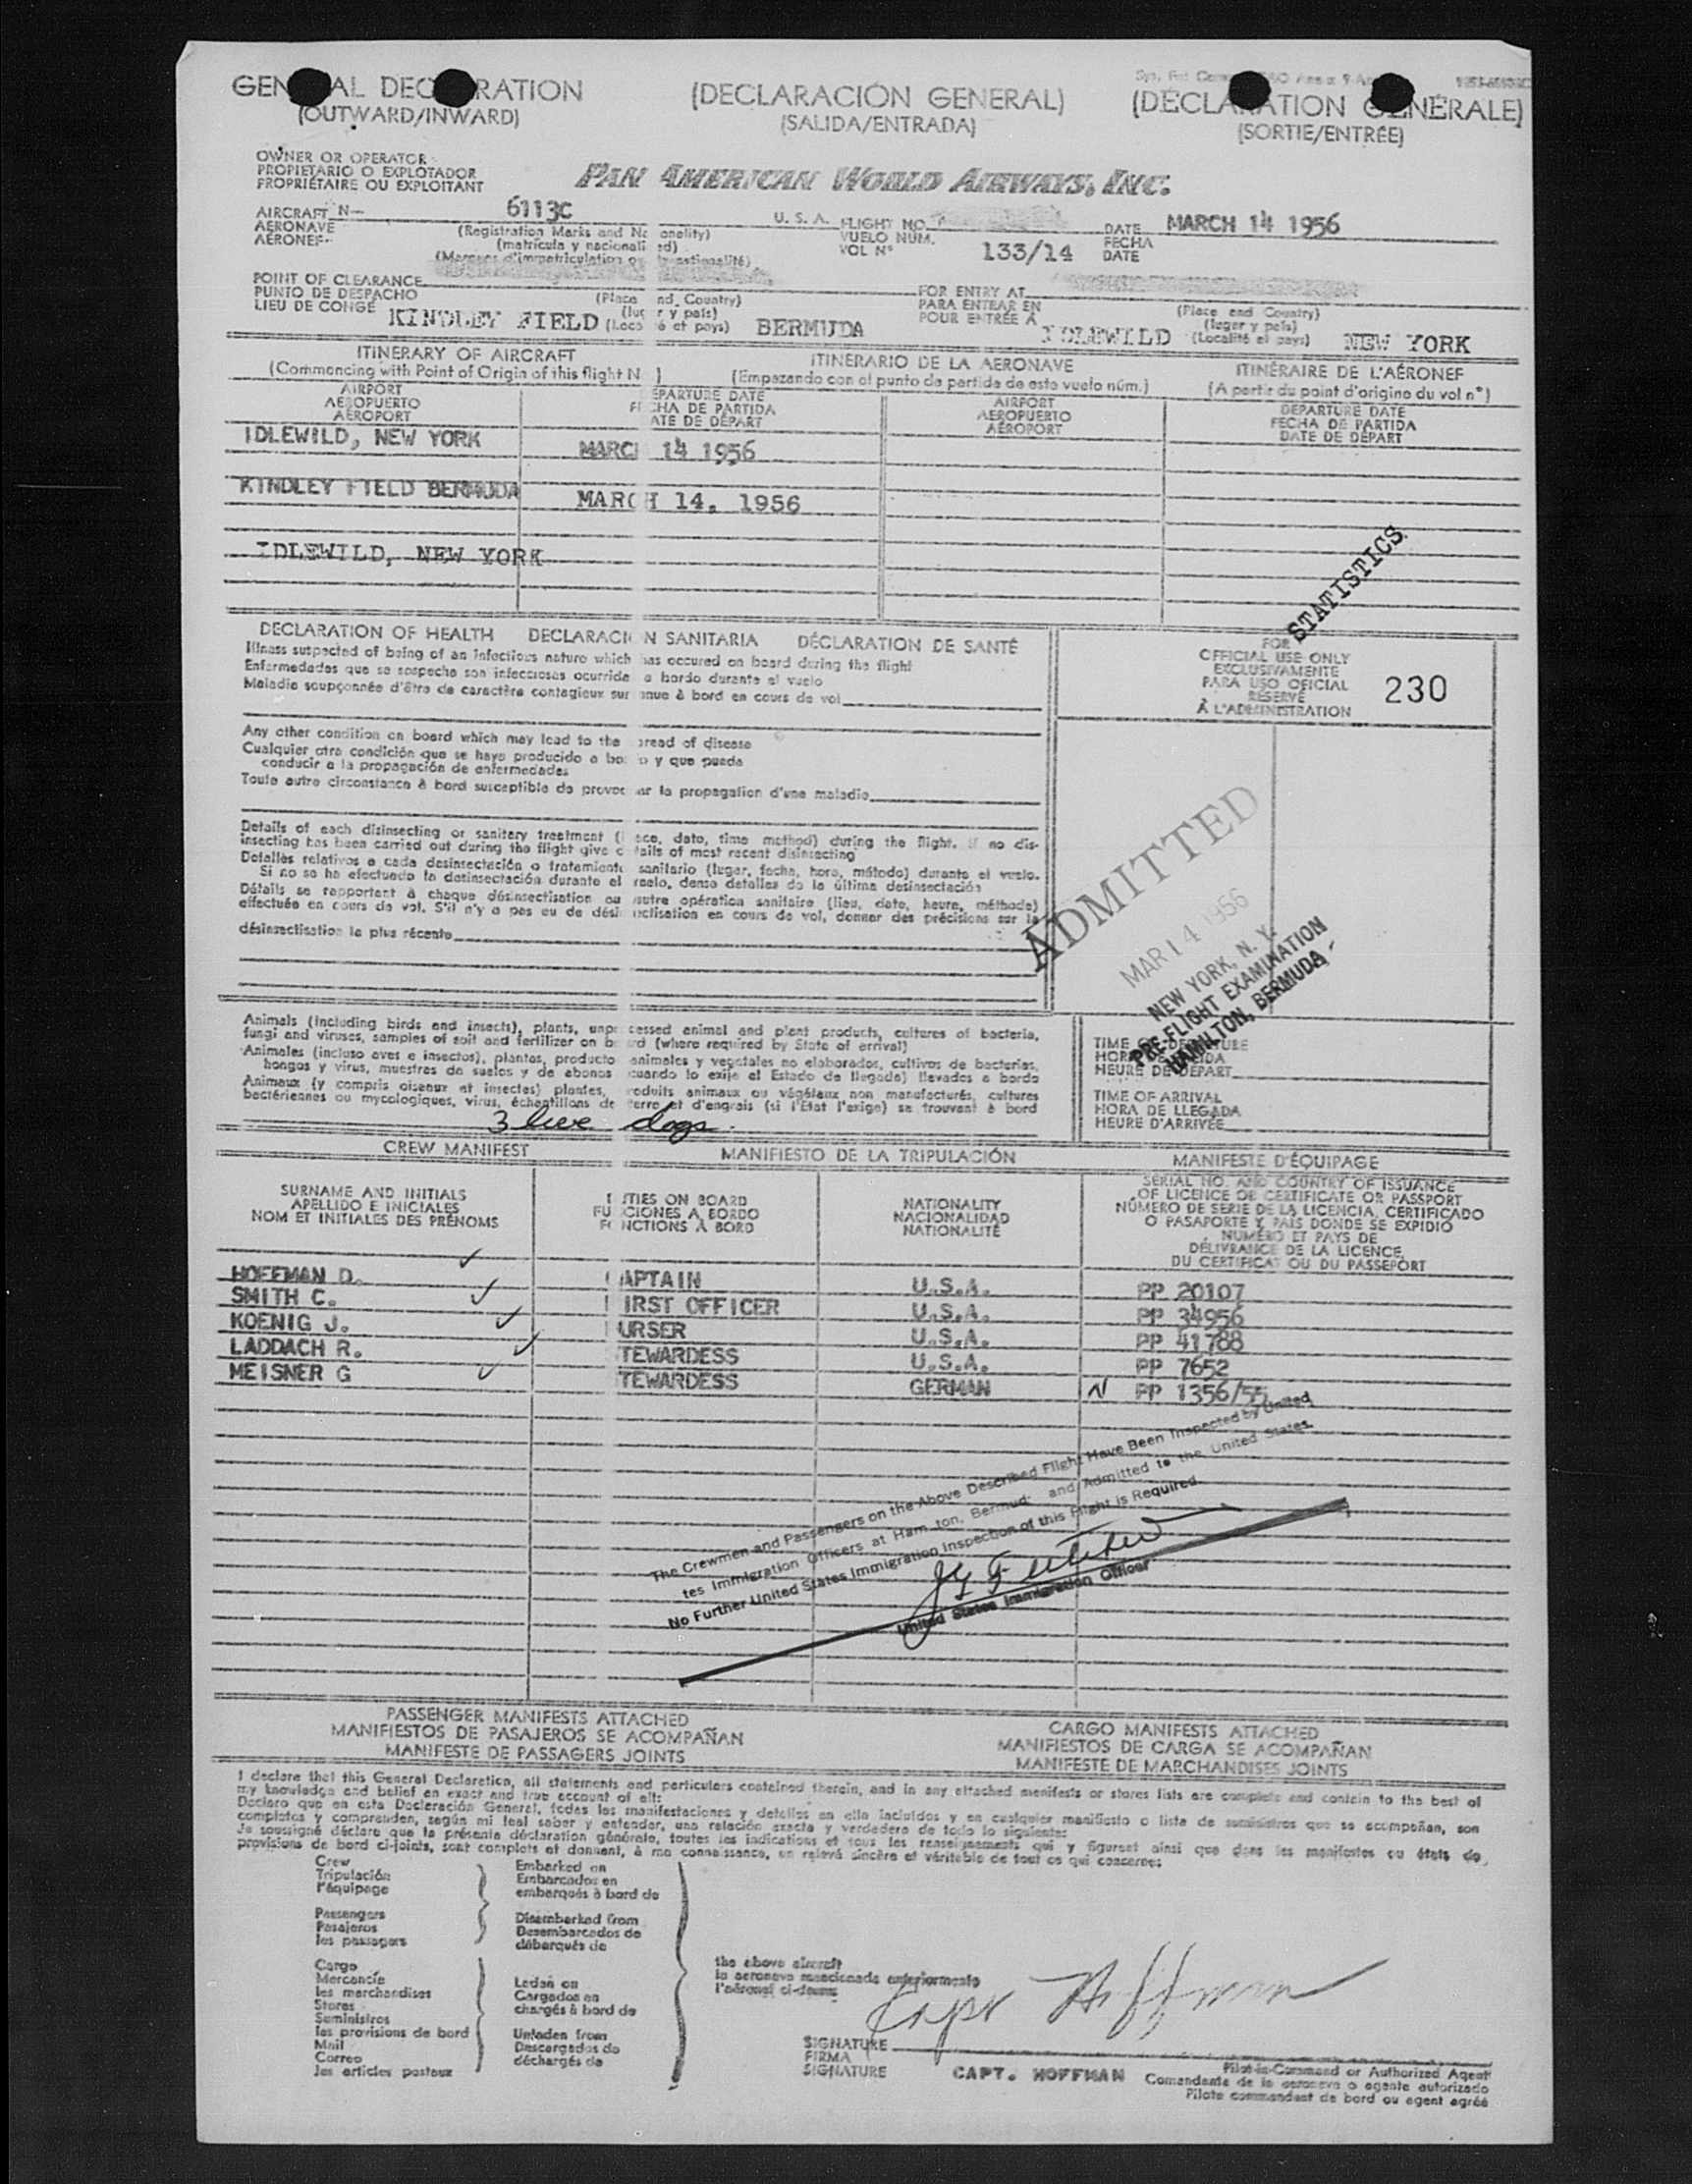 GENERAL DECLARATION
(OUTWARD/INWARD)
(DECLARACIÓN GENERAL)
(SALIDA/ENTRADA)
(DÉCLARATION GÉNÉRALE)
(SORTIE/ENTRÉE)
OWNER OR OPERATOR
PROPIETARIO O EXPLOTADOR
PROPRIÉTAIRE OU EXPLOITANT
PAN AMERICAN WORLD AIRWAYS, INC.
AIRCRAFT N- 6113C U. S. A.
AERONAVE
AÉRONEF
(Registration Marks and Na onality)
(matrícula y nacionali ad)
FLIGHT NO.
VUELO NÚM.
VOL N° 133/14
DATE MARCH 14 1956
FECHA
DATE
POINT OF CLEARANCE
PUNTO DE DESPACHO
LIEU DE CONGÉ KINDLEY FIELD BERMUDA
(Place nd Country)
(lug r y país)
(Loca é et pays)
FOR ENTRY AT
PARA ENTRAR EN
POUR ENTRÉE À IDLEWILD NEW YORK
(Place and Country)
(lugar y país)
(Localité et pays)
ITINERARY OF AIRCRAFT
(Commencing with Point of Origin of this flight N )
ITINERARIO DE LA AERONAVE
(Empezando con el punto de partida de este vuelo núm.)
ITINÉRAIRE DE L'AÉRONEF
(A partir du point d'origine du vol n°)
AIRPORT
AEROPUERTO
AÉROPORT
EPARTURE DATE
FE CHA DE PARTIDA
ATE DE DÉPART
AIRPORT
AEROPUERTO
AÉROPORT
DEPARTURE DATE
FECHA DE PARTIDA
DATE DE DÉPART
IDLEWILD, NEW YORK MARC 14 1956
KINDLEY FIELD BERMUDA MARCH 14, 1956
IDLEWILD, NEW YORK
STATISTICS
DECLARATION OF HEALTH DECLARACI N SANITARIA DÉCLARATION DE SANTÉ
Illness suspected of being of an infectious nature which has occured on board during the flight
Enfermedades que se sospecha son infecciosas ocurrida a bordo durante el vuelo
Maladie soupçonnée d'être de caractère contagieux sur enue à bord en cours de vol
Any other condition on board which may lead to the pread of disease
Cualquier otra condición que se haya producido a bo o y que pueda
conducir a la propagación de enfermedades
Toute autre circonstance à bord susceptible de provoc er la propagation d'une maladie
Details of each disinsecting or sanitary treatment ( ace, date, time method) during the flight. If no dis-
insecting has been carried out during the flight give d tails of most recent disinsecting
Detalles relativos a cada desinsectación o tratamiento sanitario (lugar, fecha, hora, método) durante el vuelo.
Si no se ha efectuado la desinsectación durante el vuelo, dense detalles de la última desinsectación
Détails se rapportant à chaque désinsectisation ou autre opération sanitaire (lieu, date, heure, méthode)
effectuée en cours de vol. S'il n'y a pas eu de dési ectisation en cours de vol, donner des précisions sur la
désinsectisation la plus récente
FOR
OFFICIAL USE ONLY
EXCLUSIVAMENTE
PARA USO OFICIAL
RÉSERVÉ
À L'ADMINISTRATION
230
ADMITTED
MAR 14 1956
NEW YORK, N. Y.
PRE-FLIGHT EXAMINATION
HAMILTON, BERMUDA
Animals (including birds and insects), plants, unpr cessed animal and plant products, cultures of bacteria,
fungi and viruses, samples of soil and fertilizer on b ard (where required by State of arrival)
Animales (incluso aves e insectos), plantas, producto animales y vegetales no elaborados, cultivos de bacterias,
hongos y virus, muestras de suelos y de abonos cuando lo exije el Estado de llegada) llevados a bordo
Animaux (y compris oiseaux et insectes) plantes, roduits animaux ou végétaux non manufacturés, cultures
bactériennes ou mycologiques, virus, échantillons de terre et d'engrais (si l'État l'exige) se trouvent à bord
3 live dogs.
TIME OF DEPARTURE
HORA DE PARTIDA
HEURE DE DÉPART
TIME OF ARRIVAL
HORA DE LLEGADA
HEURE D'ARRIVÉE
CREW MANIFEST MANIFIESTO DE LA TRIPULACIÓN MANIFESTE D'ÉQUIPAGE
SURNAME AND INITIALS
APELLIDO E INICIALES
NOM ET INITIALES DES PRÉNOMS
TIES ON BOARD
FU CIONES A BORDO
FO NCTIONS À BORD
NATIONALITY
NACIONALIDAD
NATIONALITÉ
SERIAL NO. AND COUNTRY OF ISSUANCE
OF LICENCE OR CERTIFICATE OR PASSPORT
NÚMERO DE SERIE DE LA LICENCIA, CERTIFICADO
O PASAPORTE Y PAÍS DONDE SE EXPIDIÓ
NUMÉRO ET PAYS DE
DÉLIVRANCE DE LA LICENCE,
DU CERTIFICAT OU DU PASSEPORT
HOFFMAN D. APTAIN U.S.A. PP 20107
SMITH C. IRST OFFICER U.S.A. PP 34956
KOENIG J. URSER U.S.A. PP 41788
LADDACH R. TEWARDESS U.S.A. PP 7652
MEISNER G TEWARDESS GERMAN N PP 1356/55
The Crewmen and Passengers on the Above Described Flight Have Been Inspected by United
tes Immigration Officers at Ham ton, Bermud and Admitted to the United States.
No Further United States Immigration Inspection of this Flight is Required.
United States Immigration Officer
PASSENGER MANIFESTS ATTACHED
MANIFIESTOS DE PASAJEROS SE ACOMPAÑAN
MANIFESTE DE PASSAGERS JOINTS
CARGO MANIFESTS ATTACHED
MANIFIESTOS DE CARGA SE ACOMPAÑAN
MANIFESTE DE MARCHANDISES JOINTS
I declare that this General Declaration, all statements and particulars contained therein, and in any attached manifests or stores lists are complete and contain to the best of
my knowledge and belief an exact and true account of all:
Declaro que en esta Declaración General, todas las manifestaciones y detalles en ella incluidos y en cualquier manifiesto o lista de suministros que se acompañan, son
completos y comprenden, según mi leal saber y entender, una relación exacta y verdadera de todo lo siguiente:
Je soussigné déclare que la présente déclaration générale, toutes les indications et tous les renseignements qui y figurent ainsi que dans les manifestes ou états de
provisions de bord ci-joints, sont complets et donnent, à ma connaissance, un relevé sincère et véritable de tout ce qui concerne:
Crew
Tripulación
l'équipage
Passengers
Pasajeros
les passagers
Embarked on
Embarcados en
embarqués à bord de
Disembarked from
Desembarcados de
débarqués de
Cargo
Mercancía
les marchandises
Stores
Suministros
les provisions de bord
Mail
Correo
les articles postaux
Laden on
Cargados en
chargés à bord de
Unladen from
Descargados de
déchargés de
the above aircraft
la aeronave mencionada anteriormente
l'aéronef ci-dessus
Capt Hoffman
SIGNATURE
FIRMA
SIGNATURE
CAPT. HOFFMAN
Pilot-in-Command or Authorized Agent
Comandante de la aeronave o agente autorizado
Pilote commandant de bord ou agent agréé